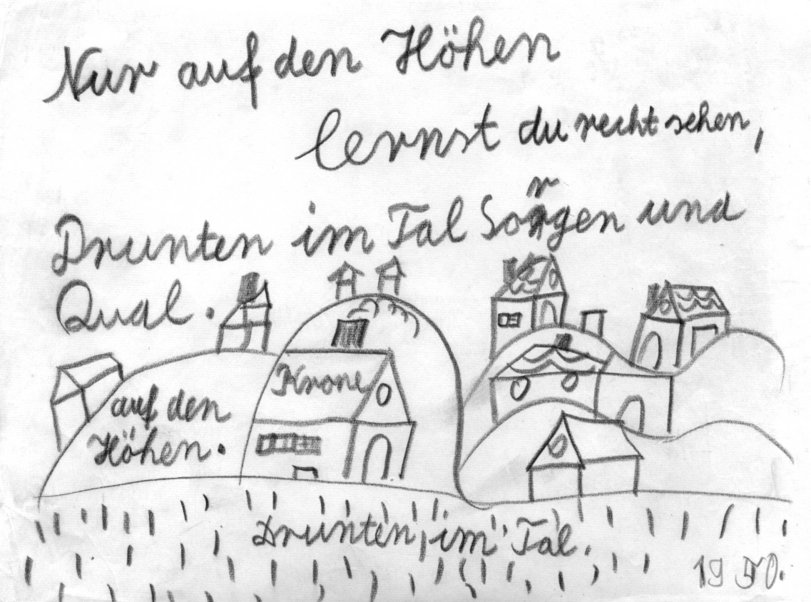 Nur auf den Höhen
lernst du recht sehen,
Drunten im Tal Sorgen und
Qual.
Krone
auf den
Höhen.
Drunten, im Tal.
1950.